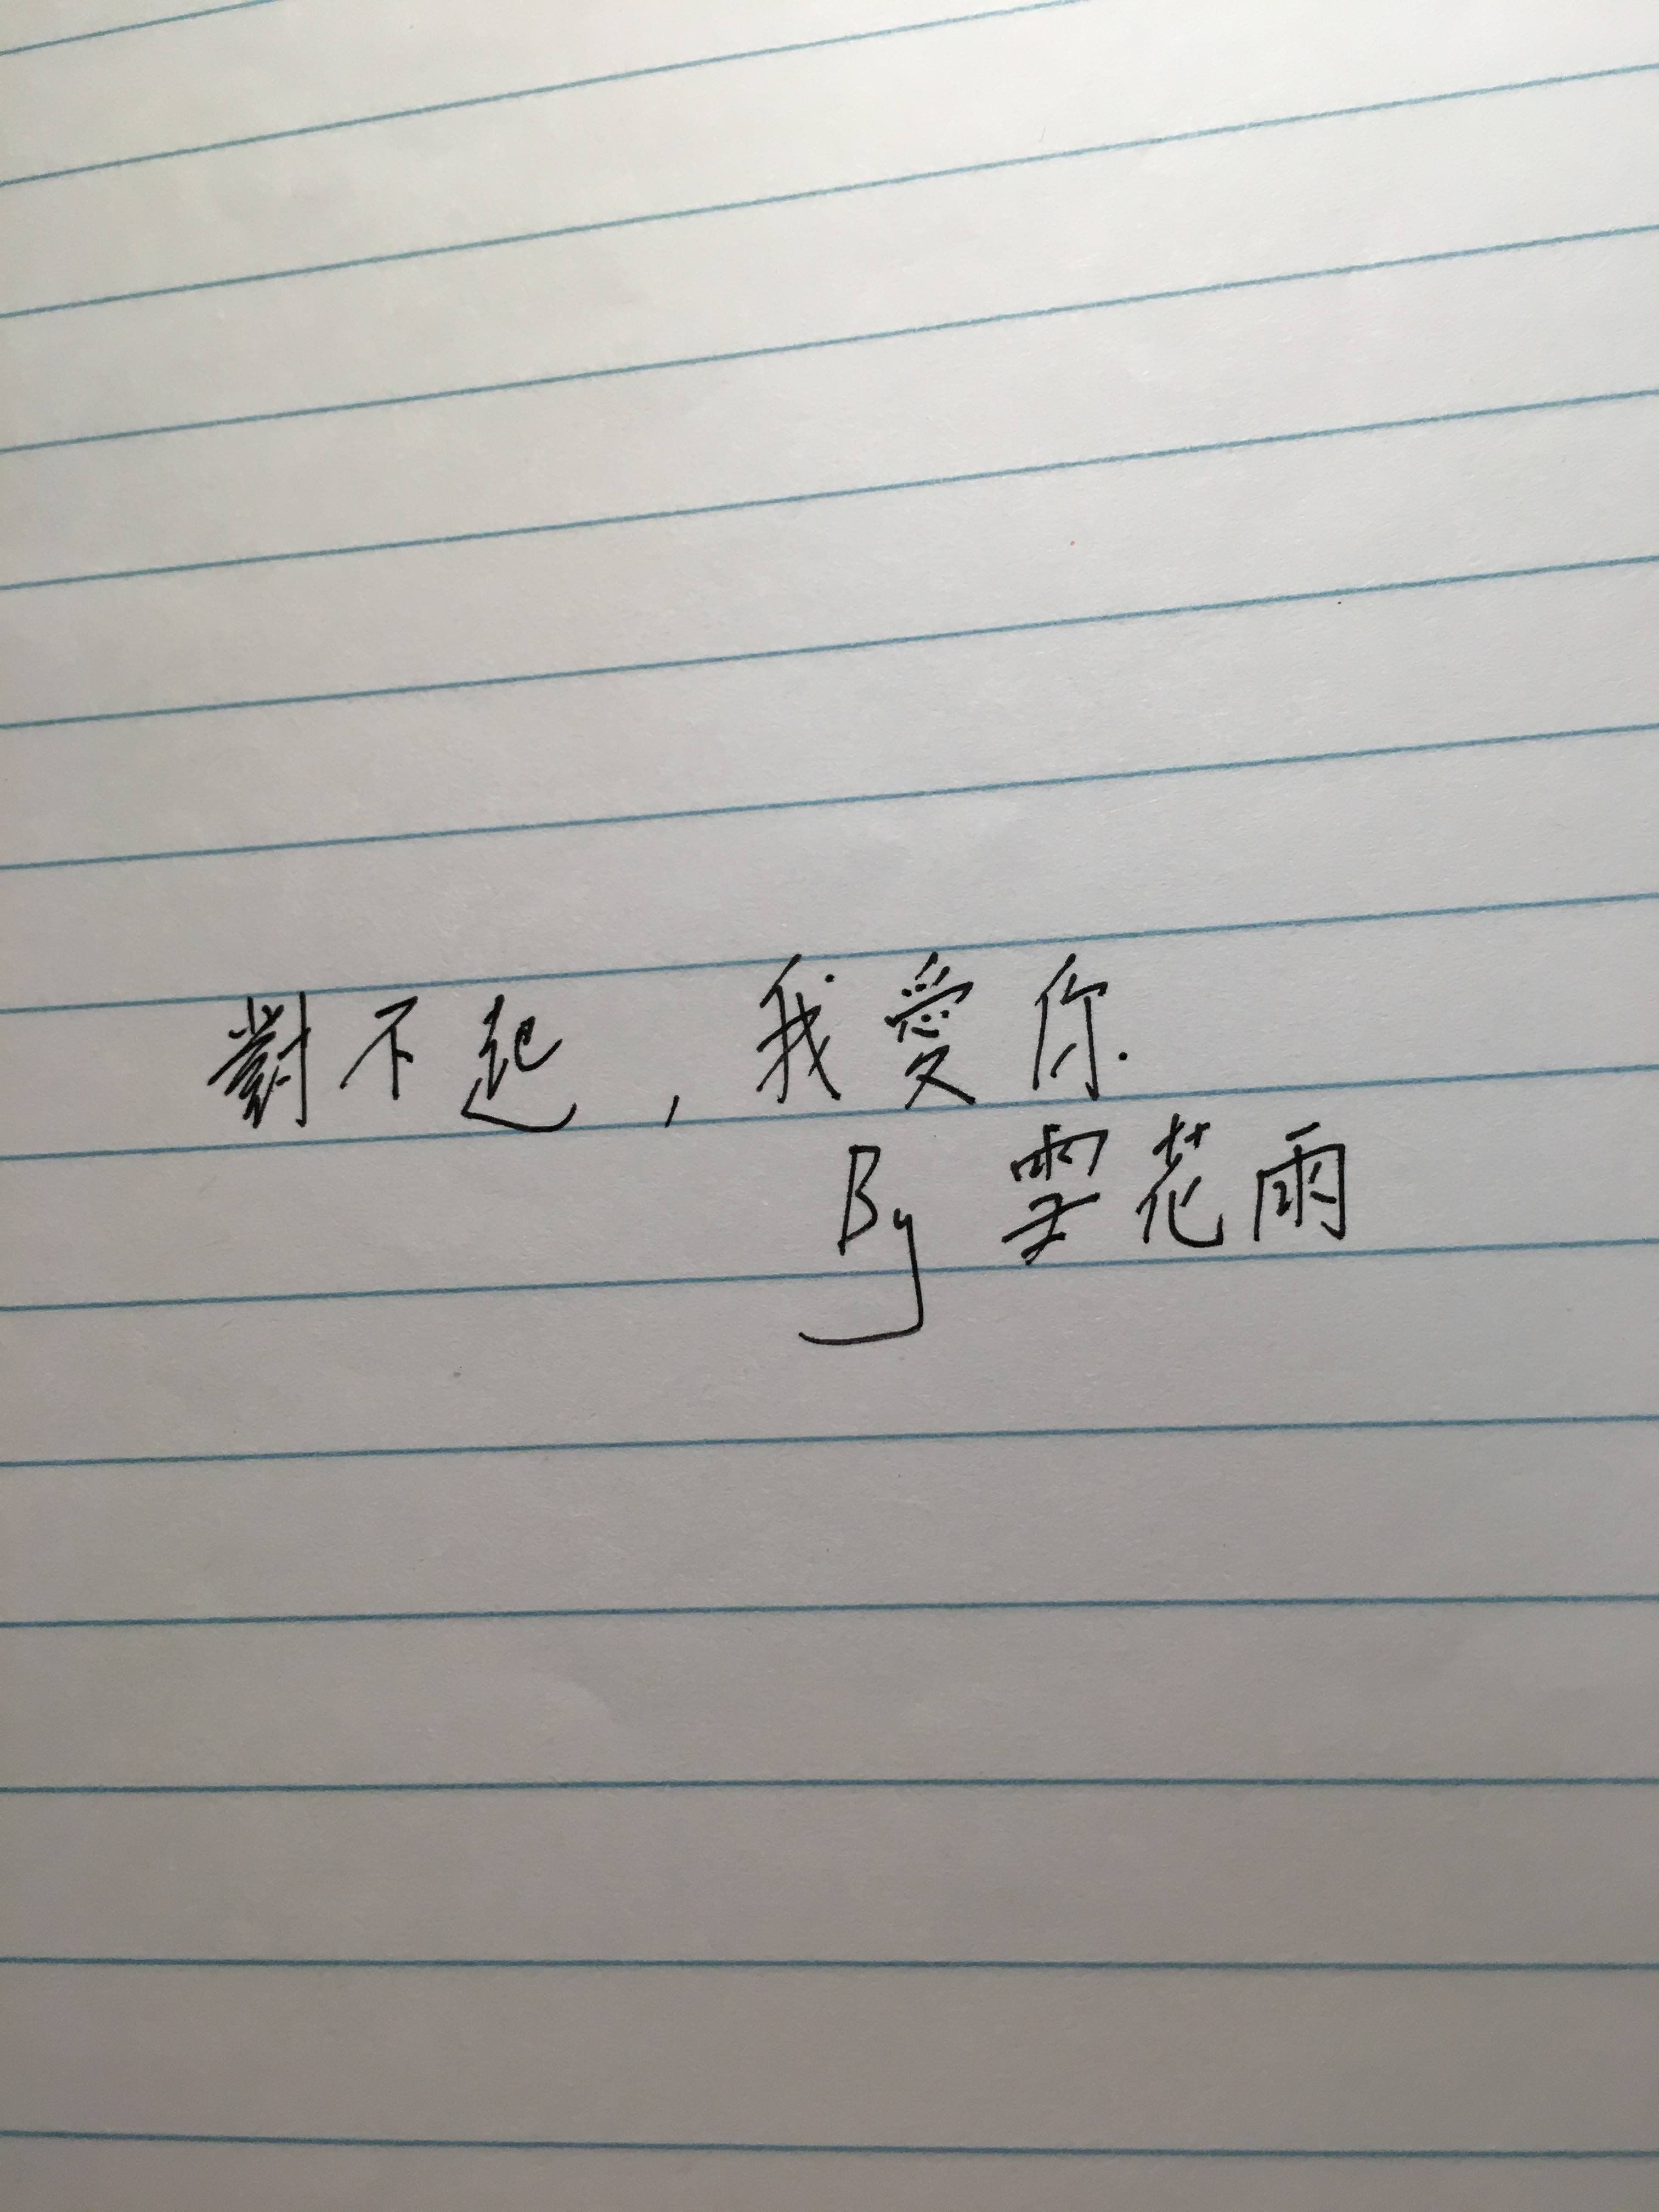 對不起,我愛你.
By 雩花雨